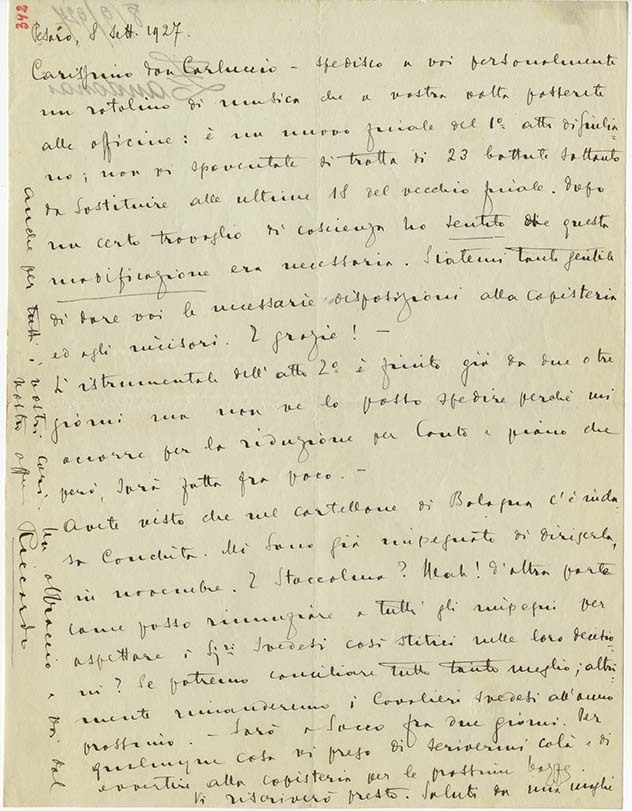 342
Pesaro, 8 sett. 1927.
Carissimo don Carluccio – spedisco a voi personalmente
un rotolino di musica che a vostra volta passerete
alle officine: è un nuovo finale del 1º atto di Giulia-
no; non vi spaventate si tratta di 23 battute soltanto
da sostituire alle ultime 18 del vecchio finale. Dopo
un certo travaglio di coscienza ho sentito che questa
modificazione era necessaria. Siatemi tanto gentile
di dare voi le necessarie disposizioni alla copisteria
ed agli incisori. E grazie! –
L'istrumentale dell'atto 2º è finito già da due o tre
giorni ma non ve lo posso spedire perchè mi
occorre per la riduzione per Canto e piano che
però, sarà fatta fra poco. –
Avete visto che nel cartellone di Bologna c'è inclu-
sa Conchita. Mi sono già impegnato di dirigerla,
in novembre. E Stoccolma? Mah! D'altra parte
come posso rinunziare a tutti gli impegni per
aspettare i Sig.ri Svedesi così stitici nelle loro decisio-
ni? Se potremo conciliare tutto tanto meglio; altri-
mente rimanderemo i Cavalieri svedesi all'anno
prossimo. – Sarò a Sacco fra due giorni. Per
qualunque cosa vi prego di scrivermi colà e di
avvertire alla copisteria per le prossime bozze.
Vi riscriverò presto. Saluti da mia moglie
anche per tutti i vostri cari. Un abbraccio a voi dal
vostro aff.
Riccardo